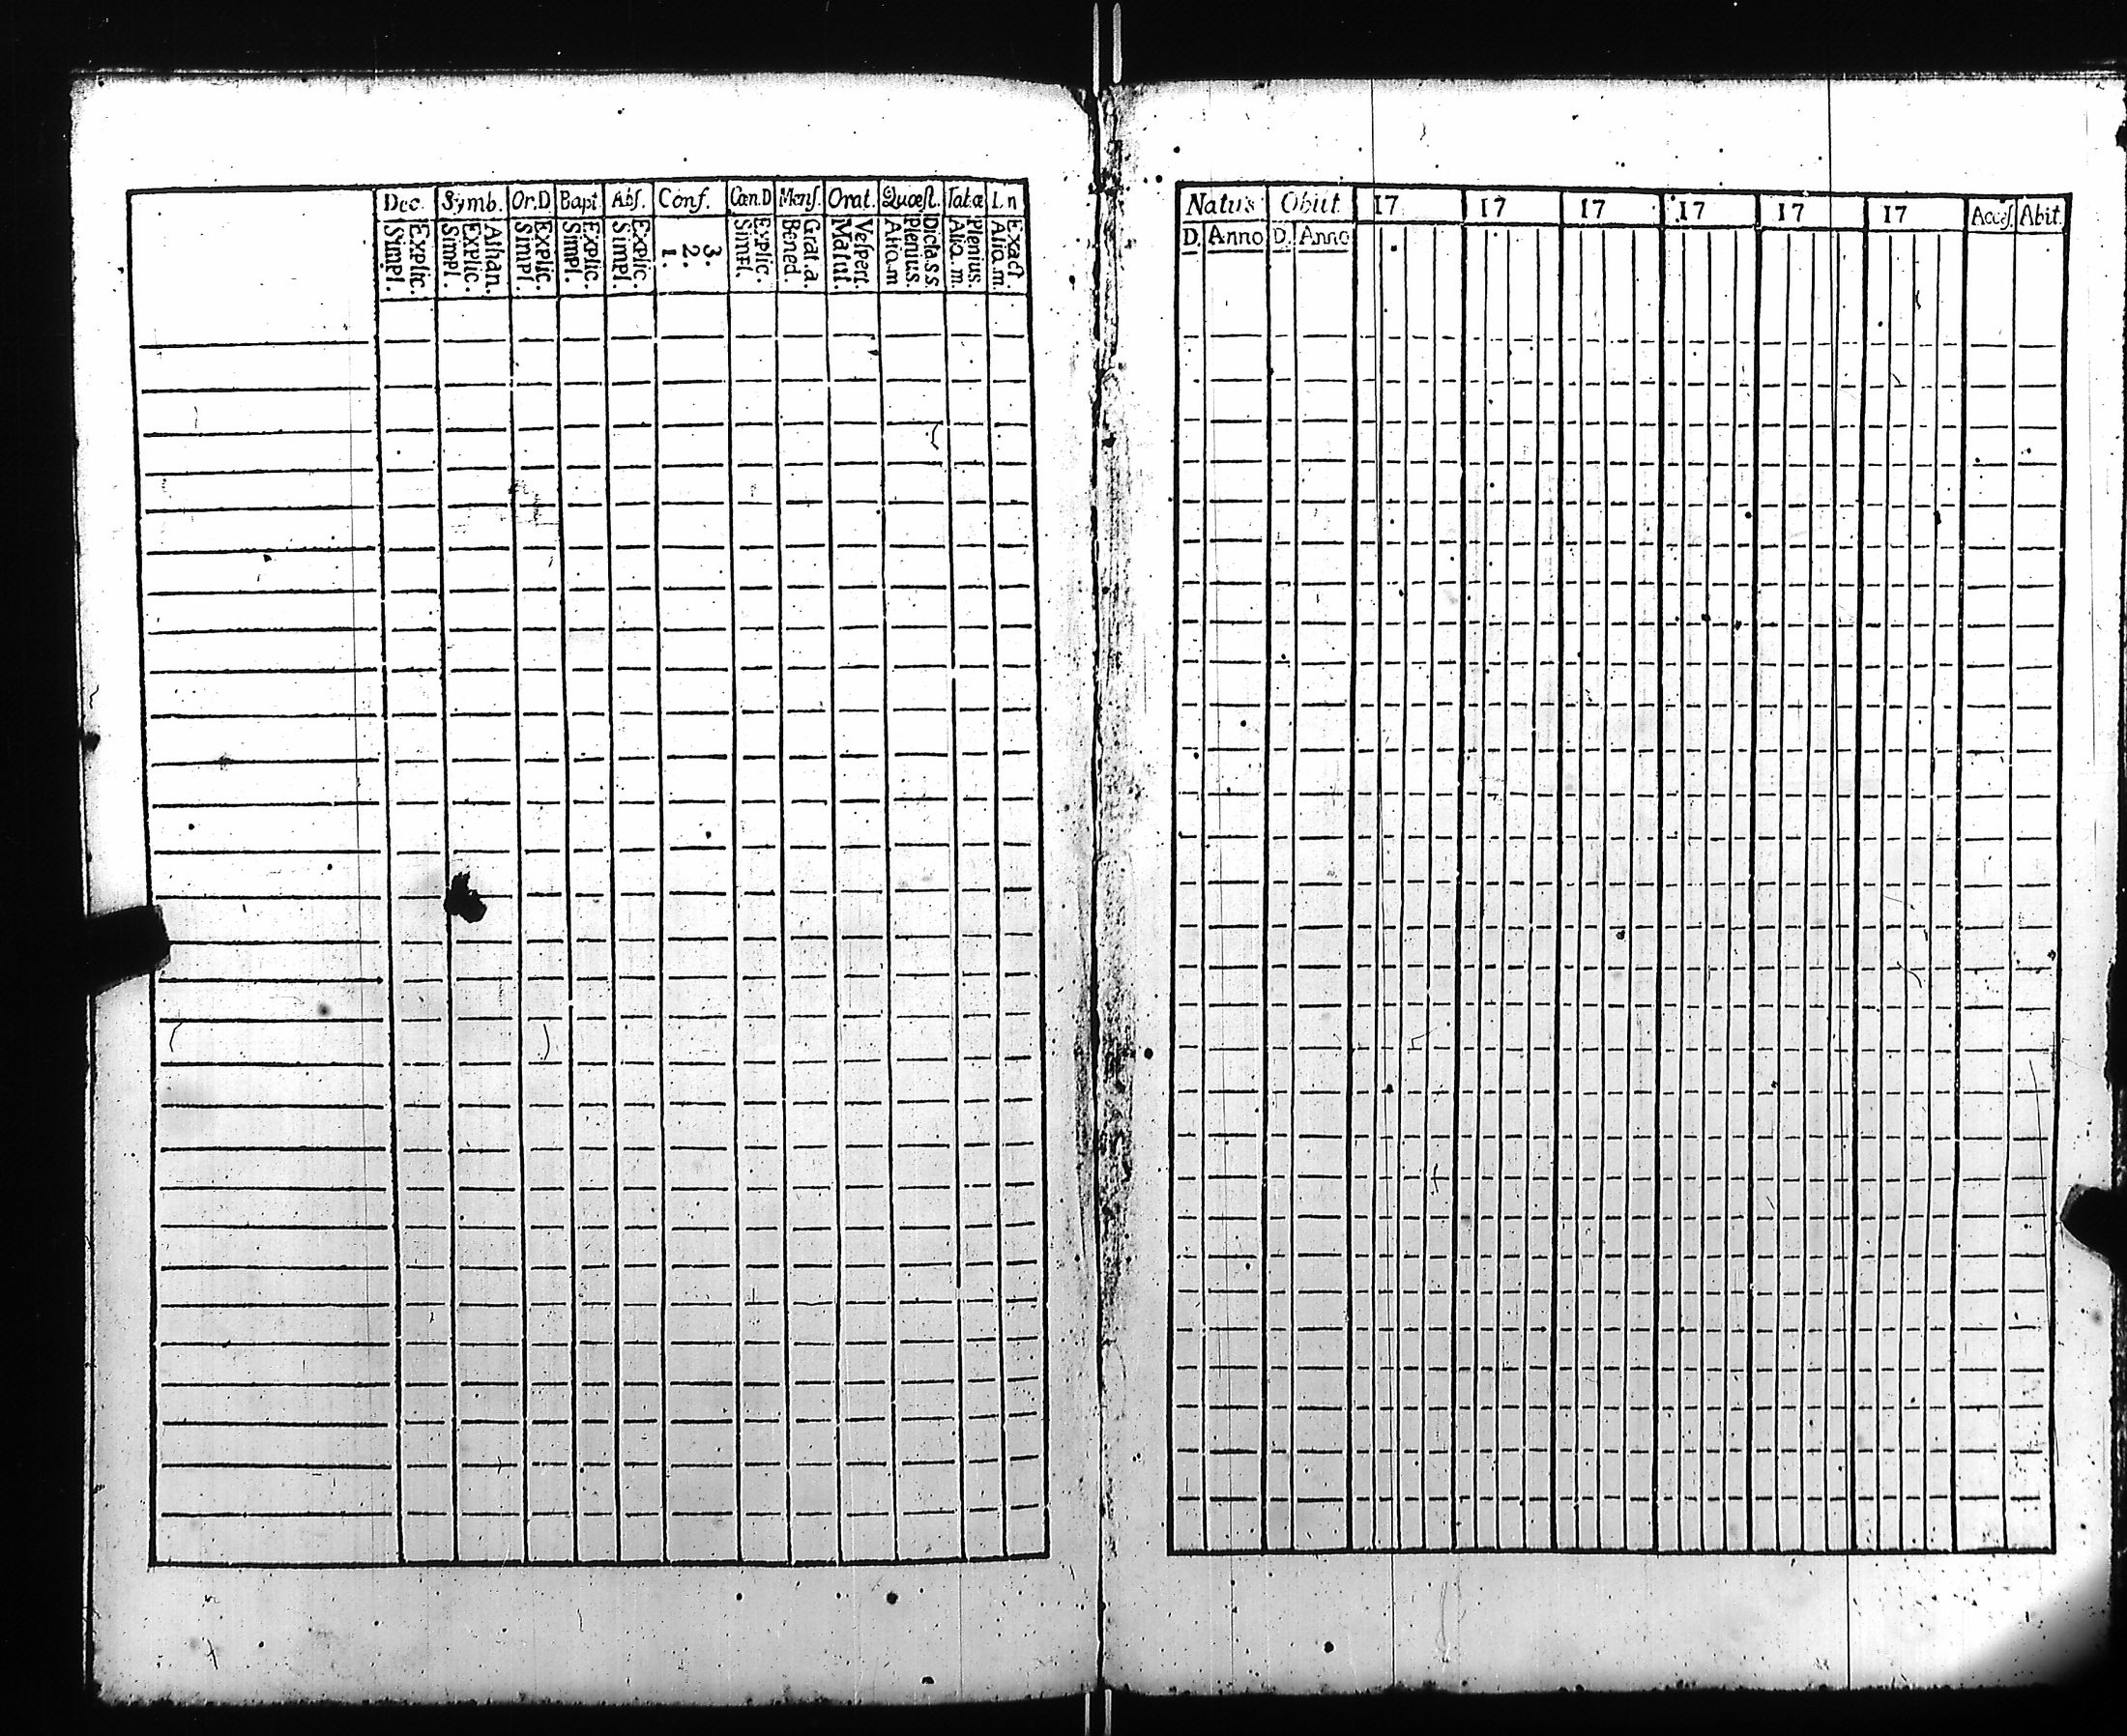 Dec. Symb. Or.D Bapt. Abſ. Conf. Cœn.D Menſ. Orat. Quæſt. Tat.æ I.n
Simpl. Explic. Simpl. Explic. Athan. Simpl. Explic. Simpl. Explic. Simpl. Explic. 1. 2. 3. Simpl. Explic. Bened. Grat.a. Matut. Veſpert. Aliq.m Plenius. Dicta.s.s. Aliq.m. Plenius. Aliq.m. Exact.
Natus Obiit 17 17 17 17 17 17 Acceſ. Abit.
D. Anno D. Anno